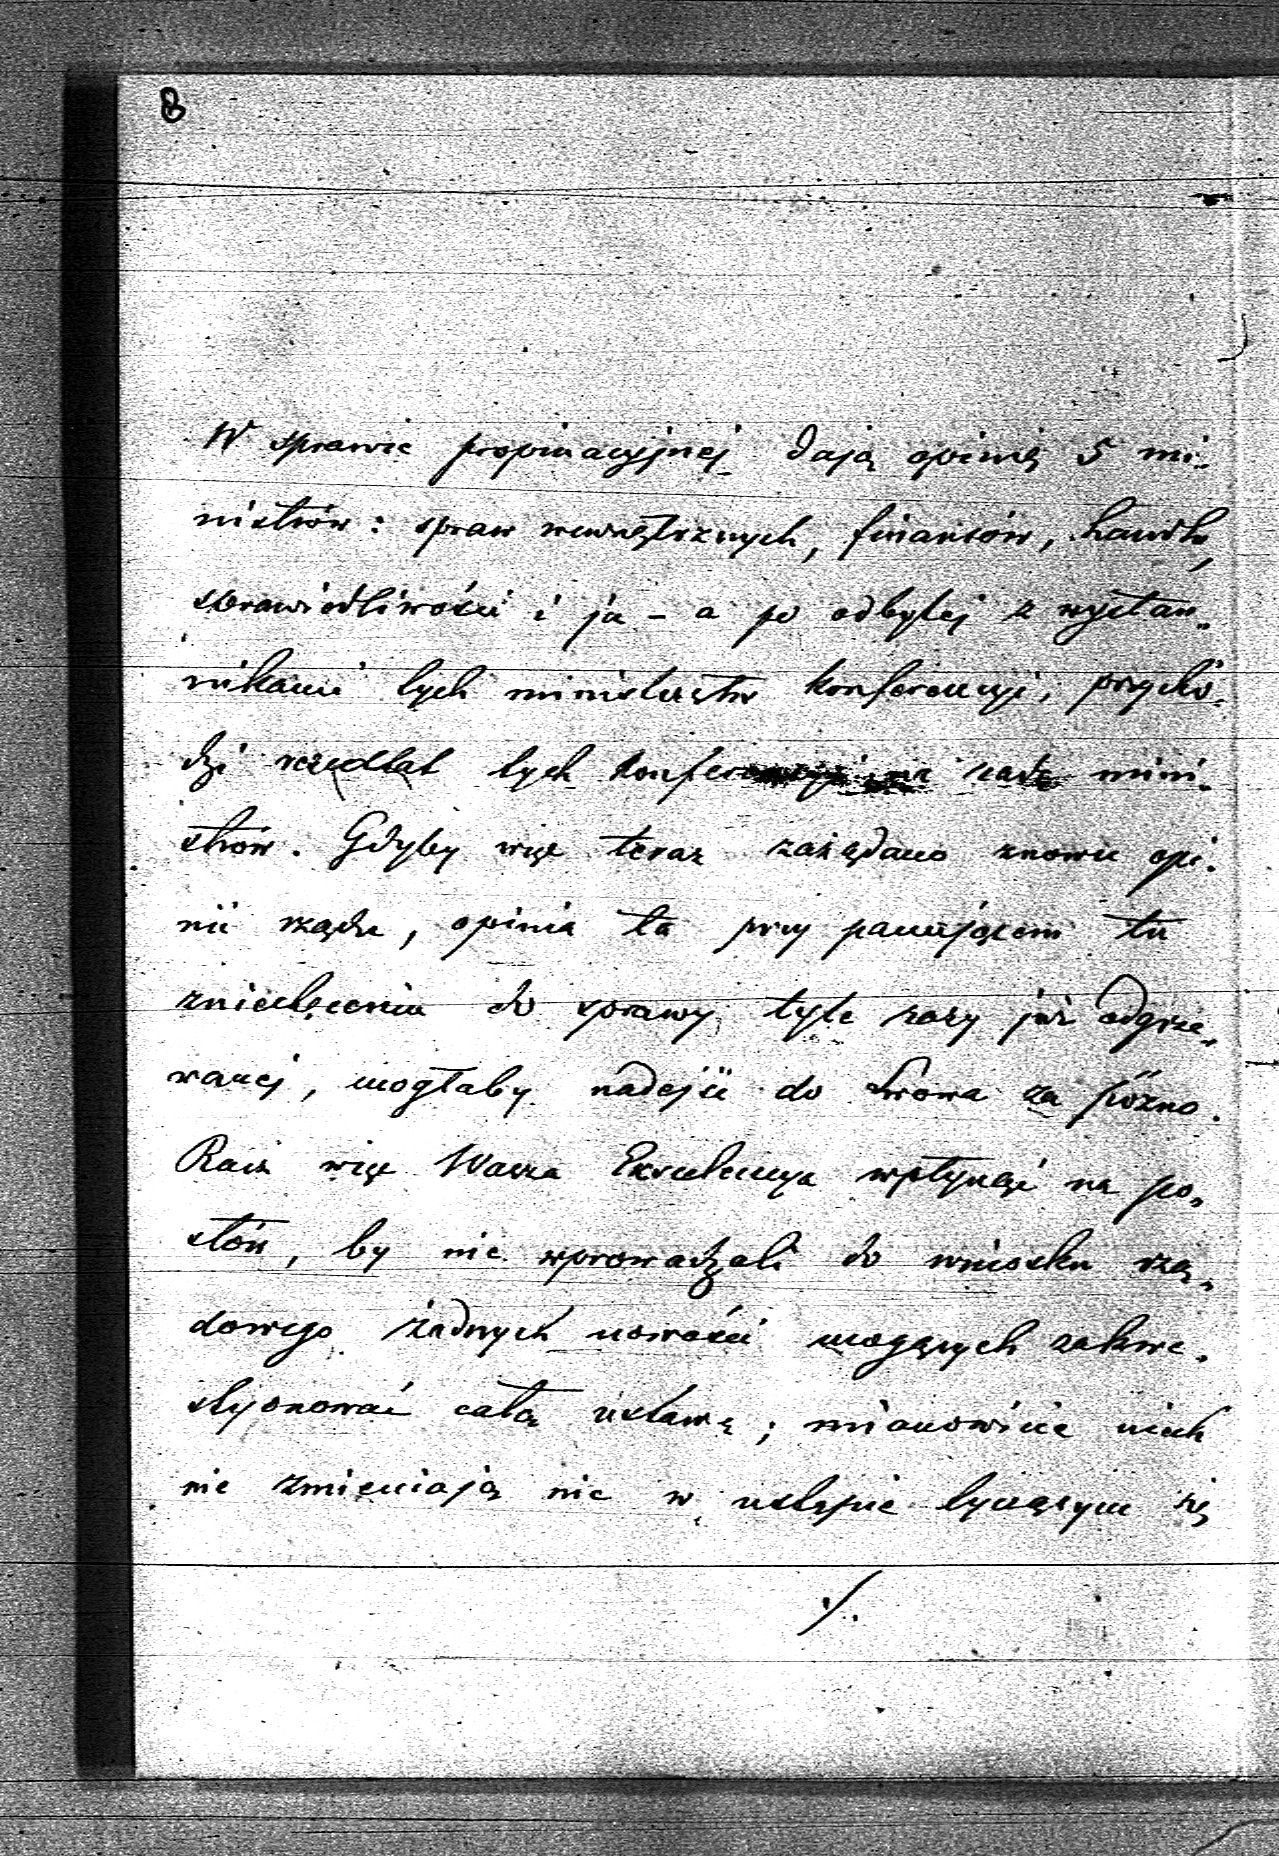 8
W sprawie propinacyjnej dają opinię 5 mi-
nistrów: spraw wewnętrznych, finansów, handlu,
sprawiedliwości i ja – a po odbytej z wysłan-
nikami tych ministerstw konferencyi, przycho-
dzi rezultat tych konferencyi na radę mini-
strów. Gdyby więc teraz zażądano znowu opi-
nii rządu, opinia ta przy panującem tu
zniechęceniu do sprawy tyle razy już odgrze-
wanej, mogłaby nadejść do Lwowa za późno.
Racz więc Wasza Excelencya wpłynąć na po-
słów, by nie wprowadzali do wniosku rzą-
dowego żadnych nowości mogących zakwe-
styonować całą ustawę; mianowicie niech
nie zmieniają nic w ustępie tyczącym się
./.